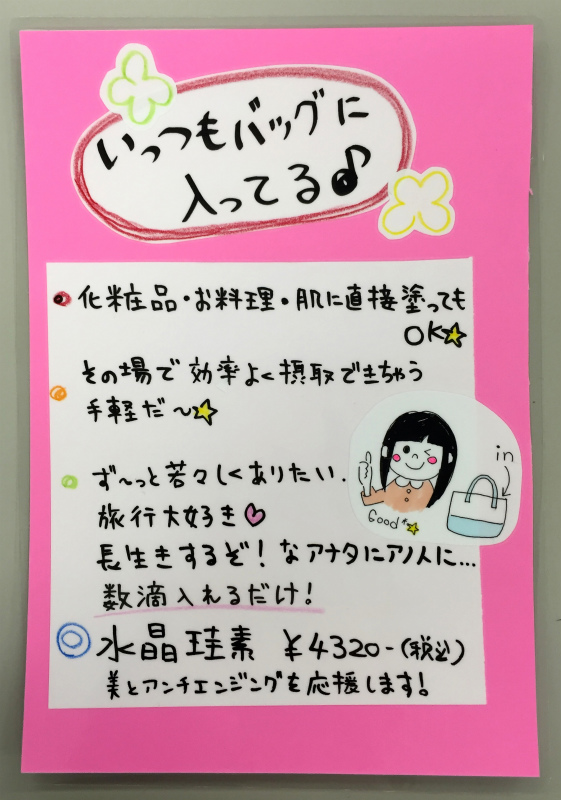 いっつもバッグに
入ってる♪
化粧品・お料理・肌に直接塗っても
OK☆
その場で効率よく摂取できちゃう
手軽だ〜☆
ず〜っと若々しくありたい.
旅行大好き♡
長生きするぞ!なアナタにアノ人に...
数滴入れるだけ!
in
Good☆
水晶珪素 ¥4320-(税込)
美とアンチエンジングを応援します!